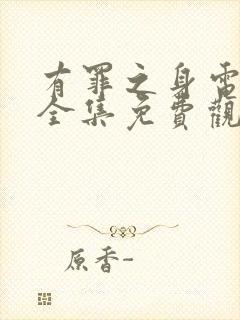 有罪之身電
全集免費觀
原香-